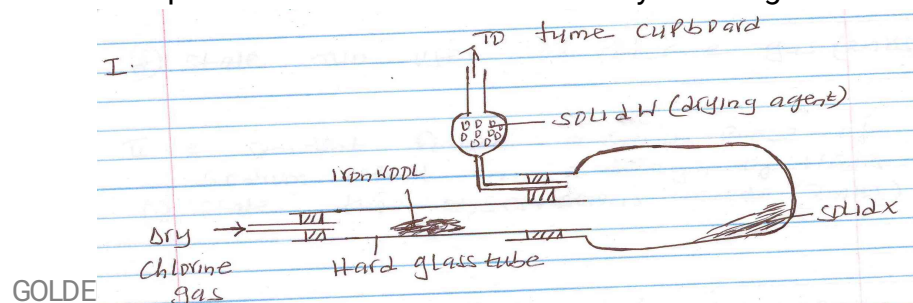 I.
TO fume cupboard
solid W (drying agent)
IRON WOOL
solid X
Dry
Chlorine
gas
Hard glass tube
GOLDE